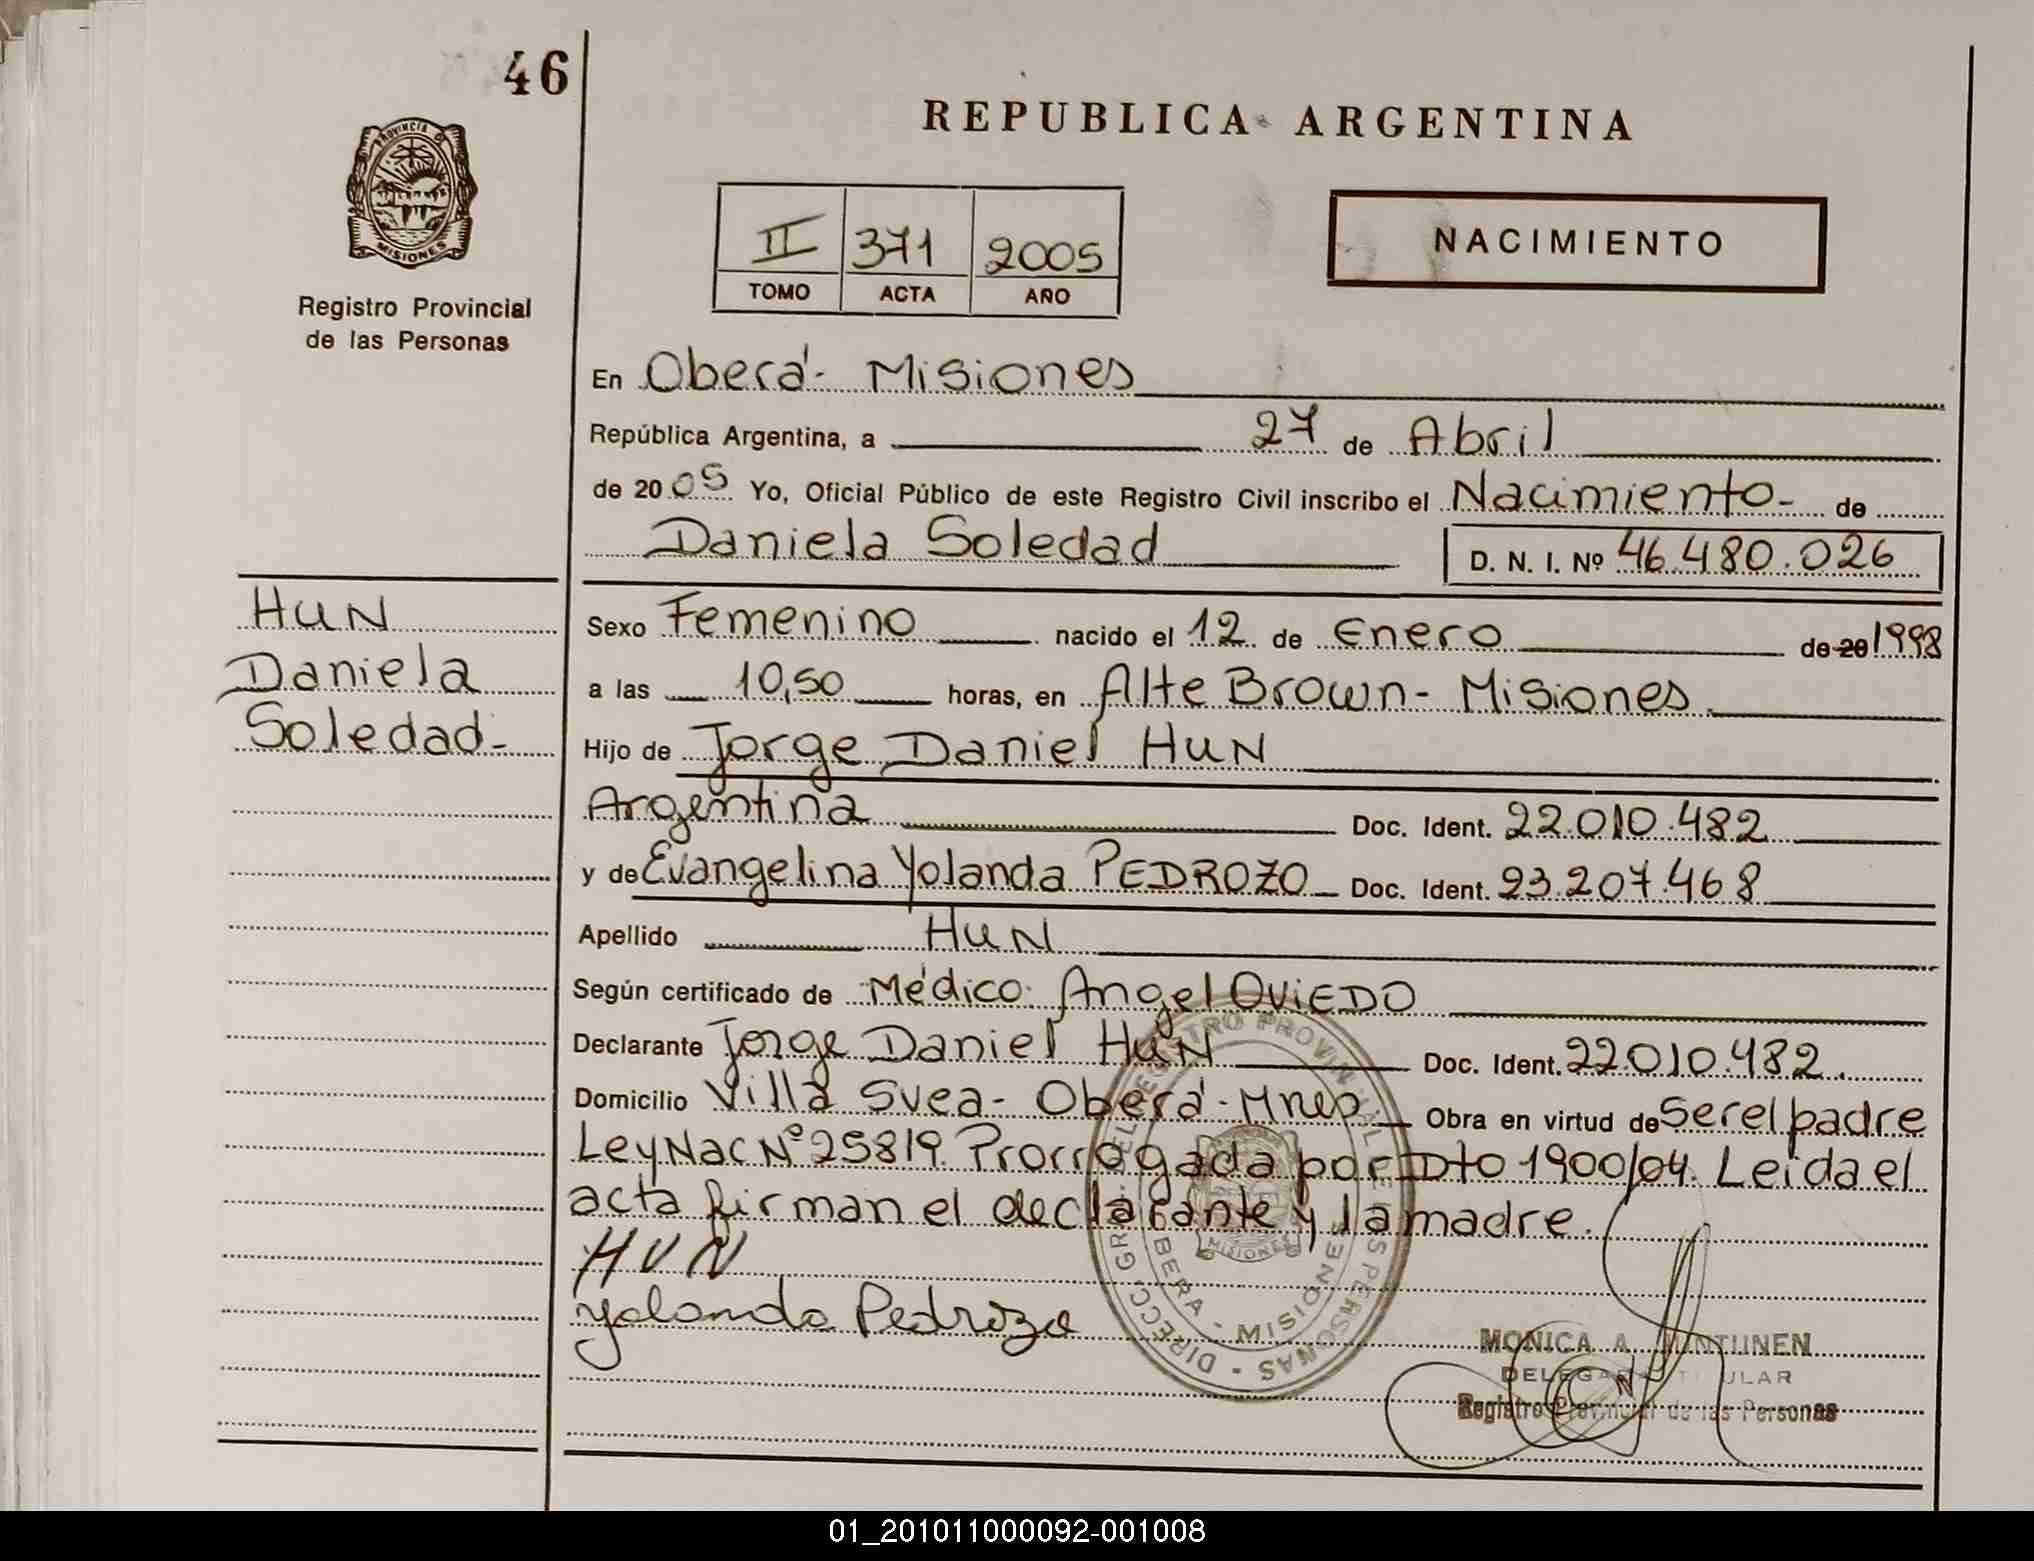 46
REPUBLICA ARGENTINA
PROVINCIA DE
MISIONES
Registro Provincial
de las Personas
II 371 2005
TOMO ACTA AÑO
NACIMIENTO
En Oberá - Misiones
República Argentina, a 27 de Abril
de 2005 Yo, Oficial Público de este Registro Civil inscribo el Nacimiento - de
Daniela Soledad D. N. I. Nº 46.480.026
HUN
Daniela
Soledad -
Sexo Femenino nacido el 12 de Enero de 20 1998
a las 10,50 horas, en Alte Brown - Misiones
Hijo de Jorge Daniel HUN
Argentina Doc. Ident. 22.010.482
y de Evangelina Yolanda PEDROZO Doc. Ident. 23.207.468
Apellido HUN
Según certificado de Médico Angel OVIEDO
Declarante Jorge Daniel HUN Doc. Ident. 22.010.482.
Domicilio Villa Svea - Oberá - Mnes Obra en virtud de Ser el padre
Ley Nac Nº 25819. Prorrogada por Dto 1900/04. Leida el
acta firman el declarante y la madre.
HUN
Yolanda Pedrozo
MONICA A.
Registro Provincial de las Personas
01_201011000092-001008